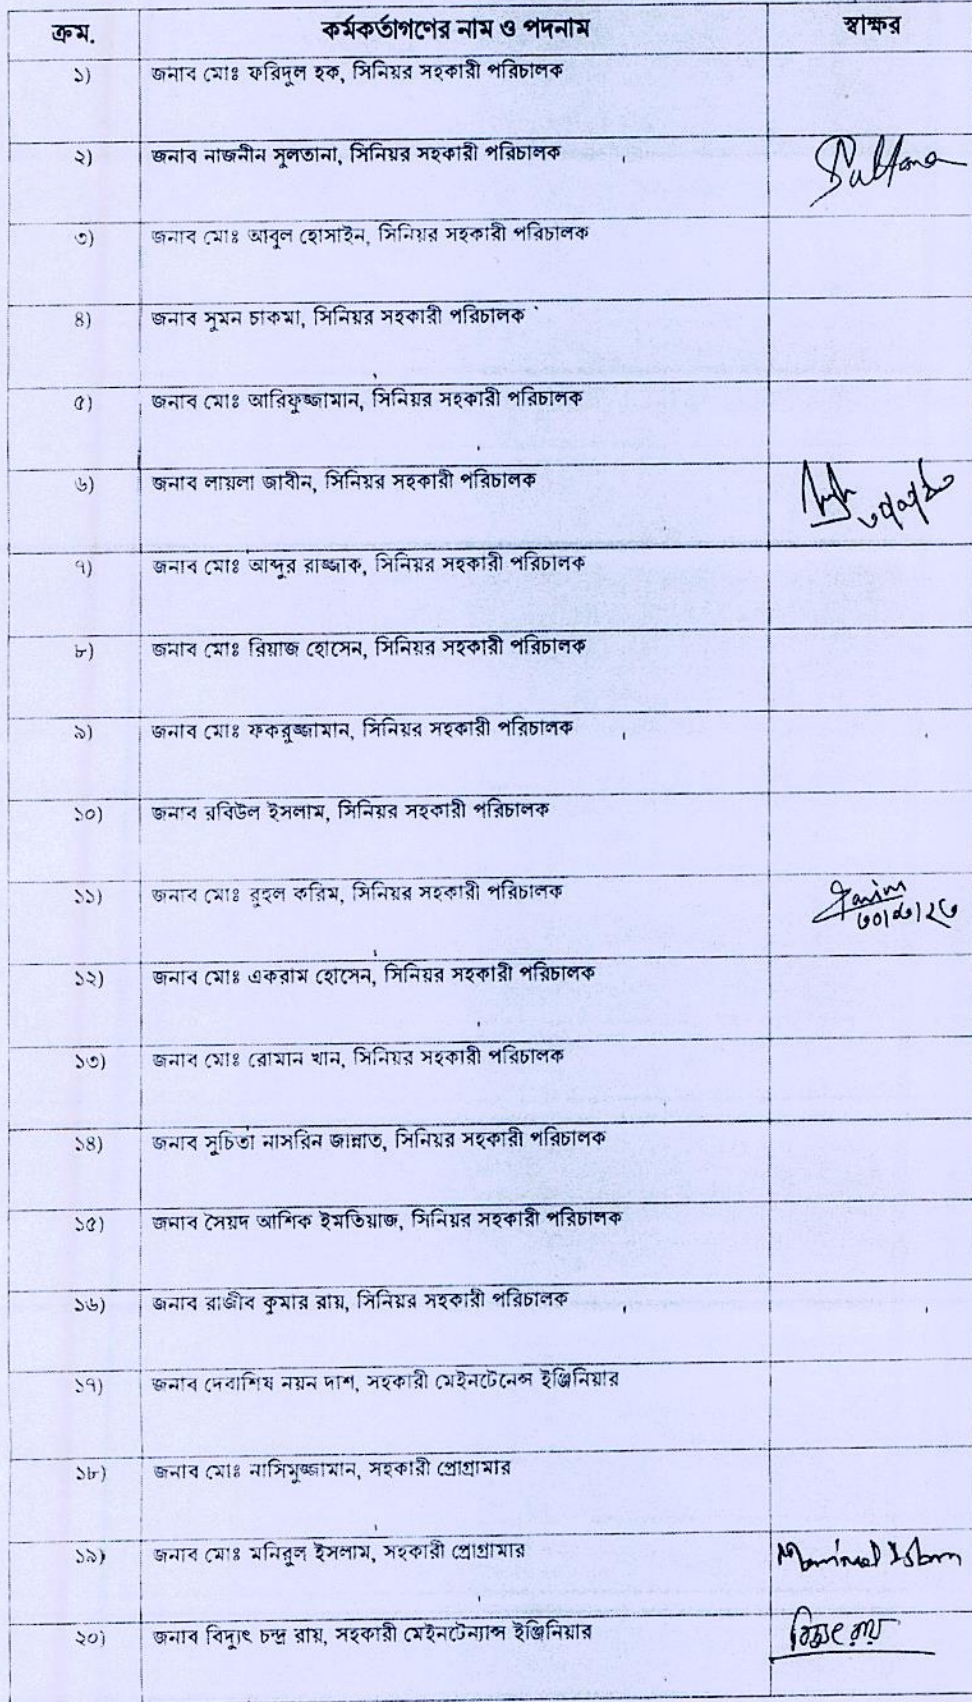 ক্রম. কর্মকর্তাগণের নাম ও পদনাম স্বাক্ষর
১) জনাব মোঃ ফরিদুল হক, সিনিয়র সহকারী পরিচালক
২) জনাব নাজনীন সুলতানা, সিনিয়র সহকারী পরিচালক Sultana
৩) জনাব মোঃ আবুল হোসাইন, সিনিয়র সহকারী পরিচালক
৪) জনাব সুমন চাকমা, সিনিয়র সহকারী পরিচালক
৫) জনাব মোঃ আরিফুজ্জামান, সিনিয়র সহকারী পরিচালক
৬) জনাব লায়লা জাবীন, সিনিয়র সহকারী পরিচালক
৭) জনাব মোঃ আব্দুর রাজ্জাক, সিনিয়র সহকারী পরিচালক
৮) জনাব মোঃ রিয়াজ হোসেন, সিনিয়র সহকারী পরিচালক
৯) জনাব মোঃ ফকরুজ্জামান, সিনিয়র সহকারী পরিচালক
১০) জনাব রবিউল ইসলাম, সিনিয়র সহকারী পরিচালক
১১) জনাব মোঃ রুহুল করিম, সিনিয়র সহকারী পরিচালক Karim
১২) জনাব মোঃ একরাম হোসেন, সিনিয়র সহকারী পরিচালক
১৩) জনাব মোঃ রোমান খান, সিনিয়র সহকারী পরিচালক
১৪) জনাব সুচিতা নাসরিন জান্নাত, সিনিয়র সহকারী পরিচালক
১৫) জনাব সৈয়দ আশিক ইমতিয়াজ, সিনিয়র সহকারী পরিচালক
১৬) জনাব রাজীব কুমার রায়, সিনিয়র সহকারী পরিচালক
১৭) জনাব দেবাশিষ নয়ন দাশ, সহকারী মেইনটেনেন্স ইঞ্জিনিয়ার
১৮) জনাব মোঃ নাসিমুজ্জামান, সহকারী প্রোগ্রামার
১৯) জনাব মোঃ মনিরুল ইসলাম, সহকারী প্রোগ্রামার Monirul Islam
২০) জনাব বিদ্যুৎ চন্দ্র রায়, সহকারী মেইনটেন্যান্স ইঞ্জিনিয়ার বিদ্যুৎ রায়